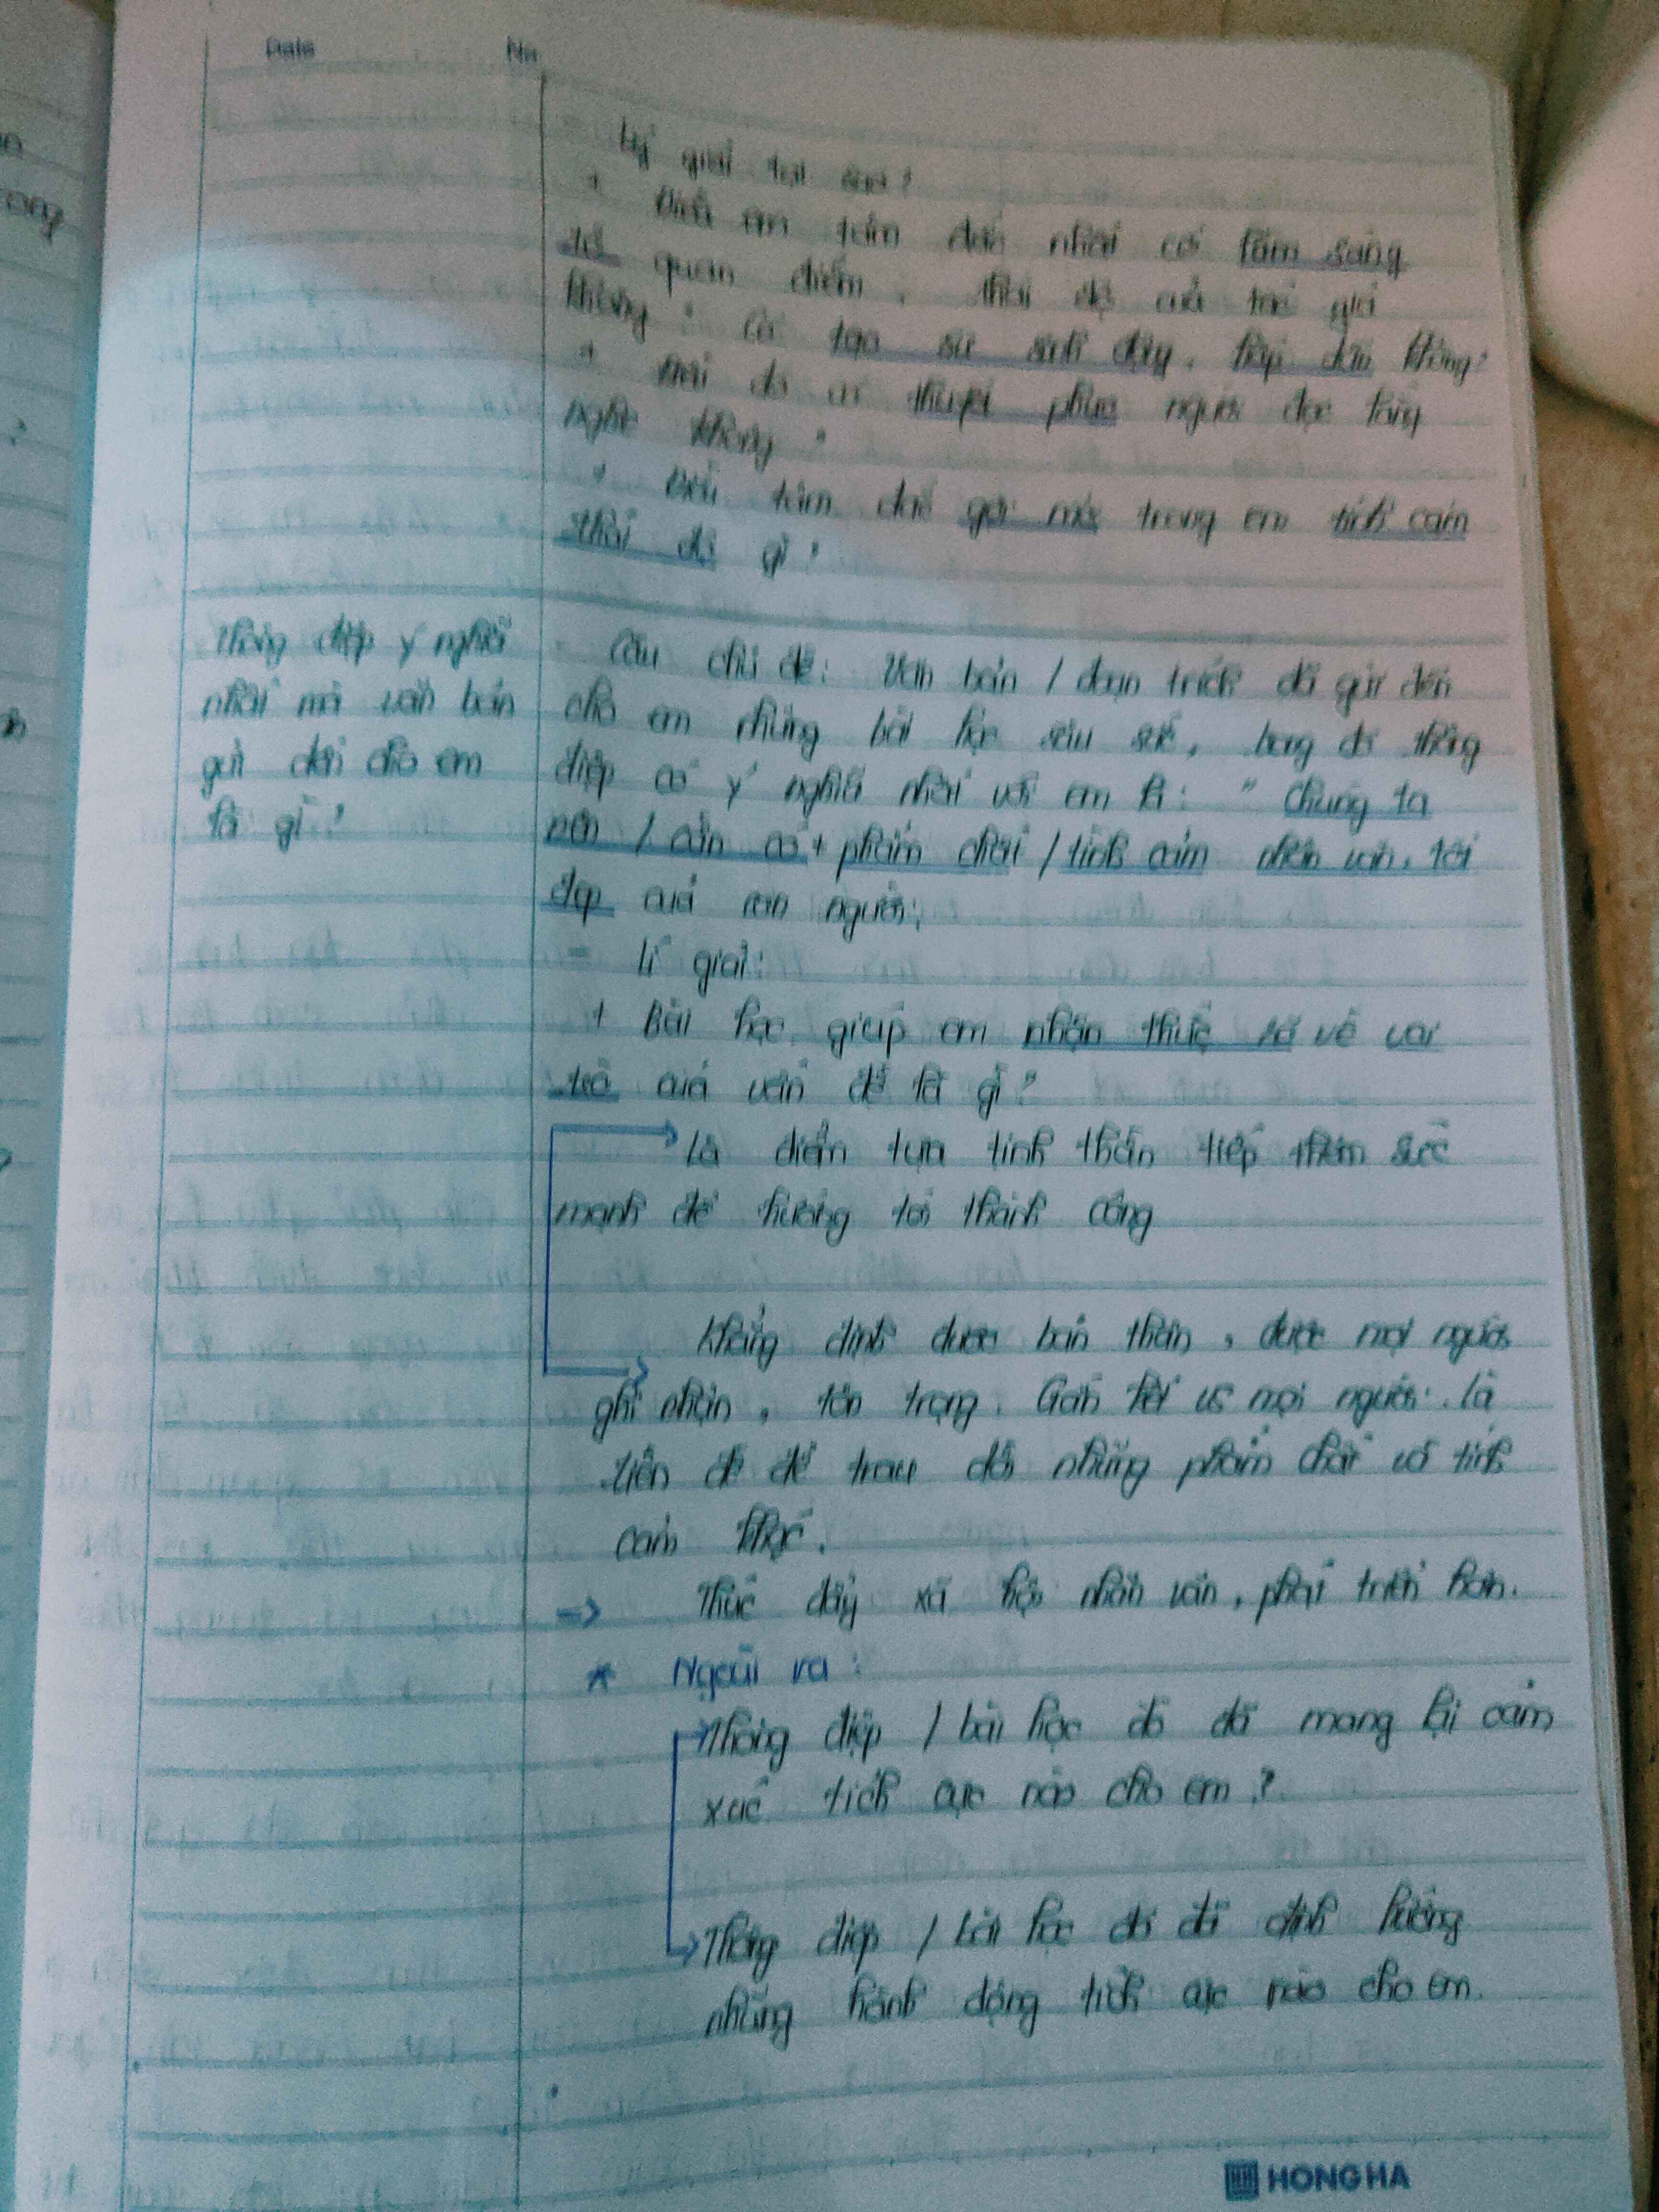 Date No
Lý giải tại sao?
+ Điều em tâm đắc nhất có làm sáng
tỏ quan điểm, thái độ của tác giả
không? Có tạo sự sinh động, hấp dẫn không?
+ Điều đó có thuyết phục người đọc lắng
nghe không?
+ Điều tâm đắc gợi mở trong em tình cảm
thái độ gì?
Thông điệp ý nghĩa
nhất mà văn bản
gửi đến cho em
là gì?
- Câu chủ đề: Văn bản / đoạn trích đã gửi đến
cho em những bài học sâu sắc, trong đó thông
điệp có ý nghĩa nhất với em là: " Chúng ta
nên / cần có + phẩm chất / tình cảm nhân văn, tốt
đẹp của con người;
Lí giải:
+ Bài học giúp em nhận thức rõ về vai
trò của vấn đề là gì?
Là điểm tựa tinh thần tiếp thêm sức
mạnh để hướng tới thành công
Khẳng định được bản thân, được mọi người
ghi nhận, tôn trọng. Gắn kết vs mọi người. Là
tiền đề để trau dồi những phẩm chất và tình
cảm khác.
=> Thúc đẩy xã hội nhân văn, phát triển hơn.
* Ngoài ra:
Thông điệp / bài học đó đã mang lại cảm
xúc tích cực nào cho em?
Thông điệp / bài học đó đã định hướng
những hành động tích cực nào cho em.
HONG HA